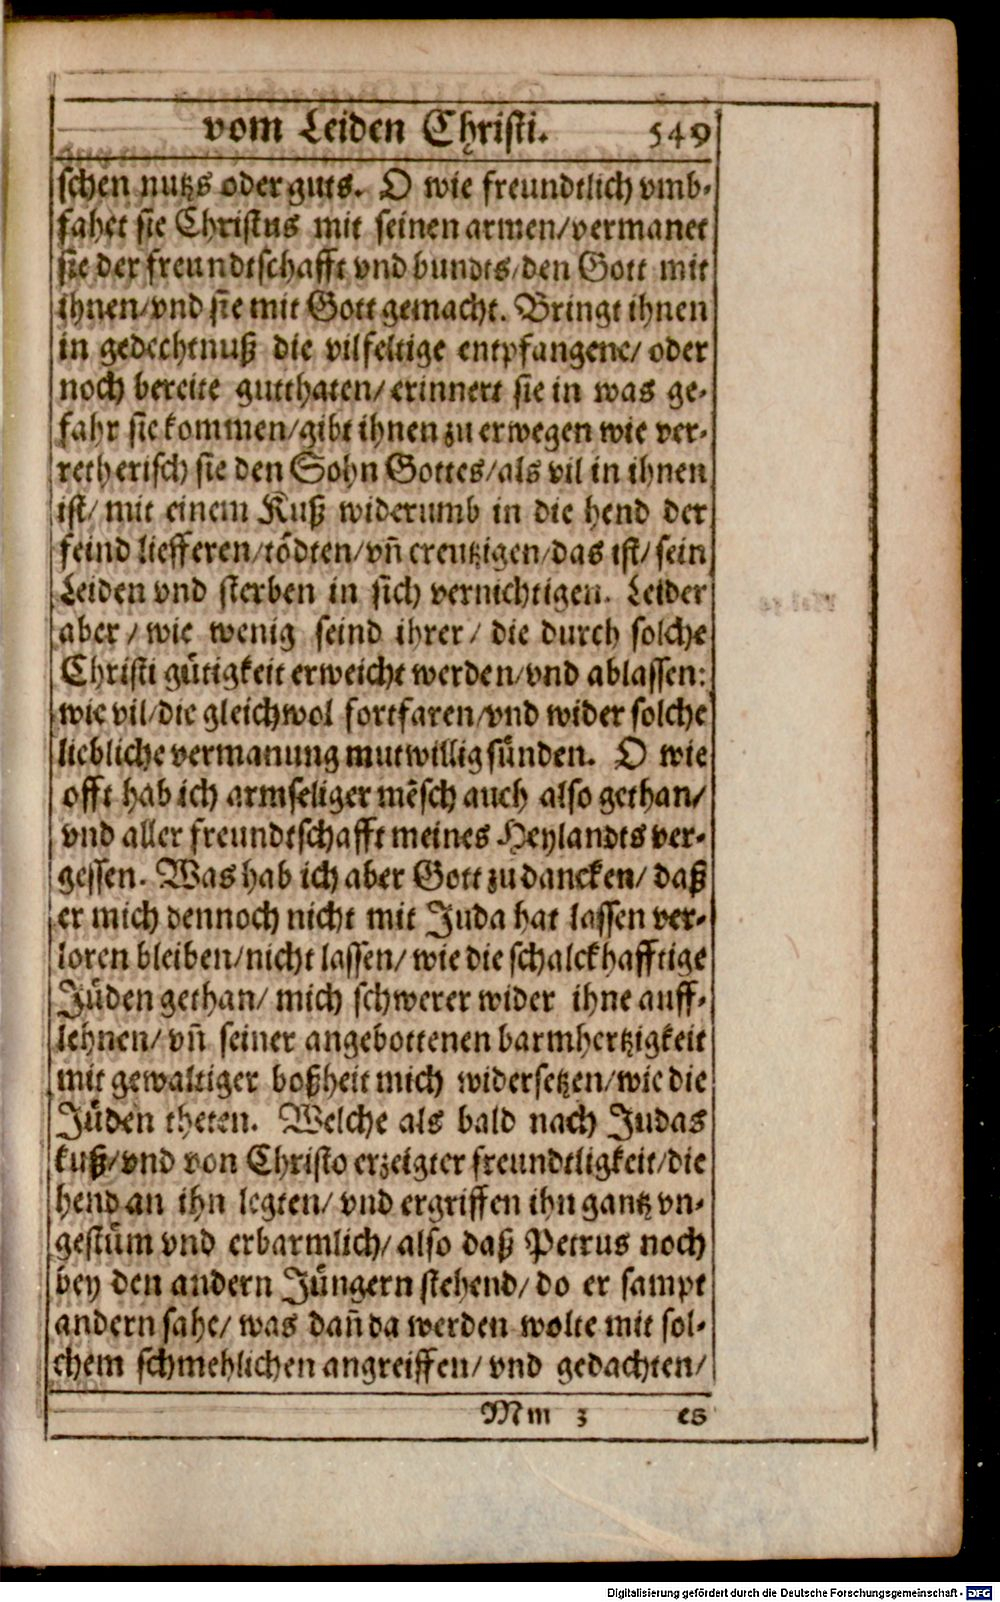 vom Leiden Christi. 549
schen nutzs oder guts. O wie freundtlich vmb-
fahet sie Christus mit seinen armen/vermanet
sie der freundtschafft vnd bundts/den Gott mit
ihnen/vnd sie mit Gott gemacht. Bringt ihnen
in gedechtnuß die vilfeltige entpfangene/ oder
noch bereite gutthaten/ erinnert sie in was ge-
fahr sie kommen/gibt ihnen zu erwegen wie ver-
retherisch sie den Sohn Gottes/als vil in ihnen
ist/ mit einem Kuß widerumb in die hend der
feind liefferen/tödten/vñ creutzigen/das ist/ sein
Leiden vnd sterben in sich vernichtigen. Leider
aber / wie wenig seind ihrer / die durch solche
Christi gütigkeit erweicht werden/vnd ablassen:
wie vil/die gleichwol fortfaren/vnd wider solche
liebliche vermanung mutwillig sünden. O wie
offt hab ich armseliger mẽsch auch also gethan/
vnd aller freundtschafft meines Heylandts ver-
gessen. Was hab ich aber Gott zu dancken/ daß
er mich dennoch nicht mit Juda hat lassen ver-
loren bleiben/nicht lassen/ wie die schalckhafftige
Jüden gethan/ mich schwerer wider ihne auff-
lehnen/ vñ seiner angebottenen barmhertzigkeit
mit gewaltiger boßheit mich widersetzen/wie die
Jüden theten. Welche als bald nach Judas
kuß/vnd von Christo erzeigter freundtligkeit/die
hend an ihn legten/ vnd ergriffen ihn gantz vn-
gestüm vnd erbarmlich/ also daß Petrus noch
bey den andern Jüngern stehend/ do er sampt
andern sahe/ was dañ da werden wolte mit sol-
chem schmehlichen angreiffen/ vnd gedachten/
Mm 3 es
Digitalisierung gefördert durch die Deutsche Forschungsgemeinschaft - DFG